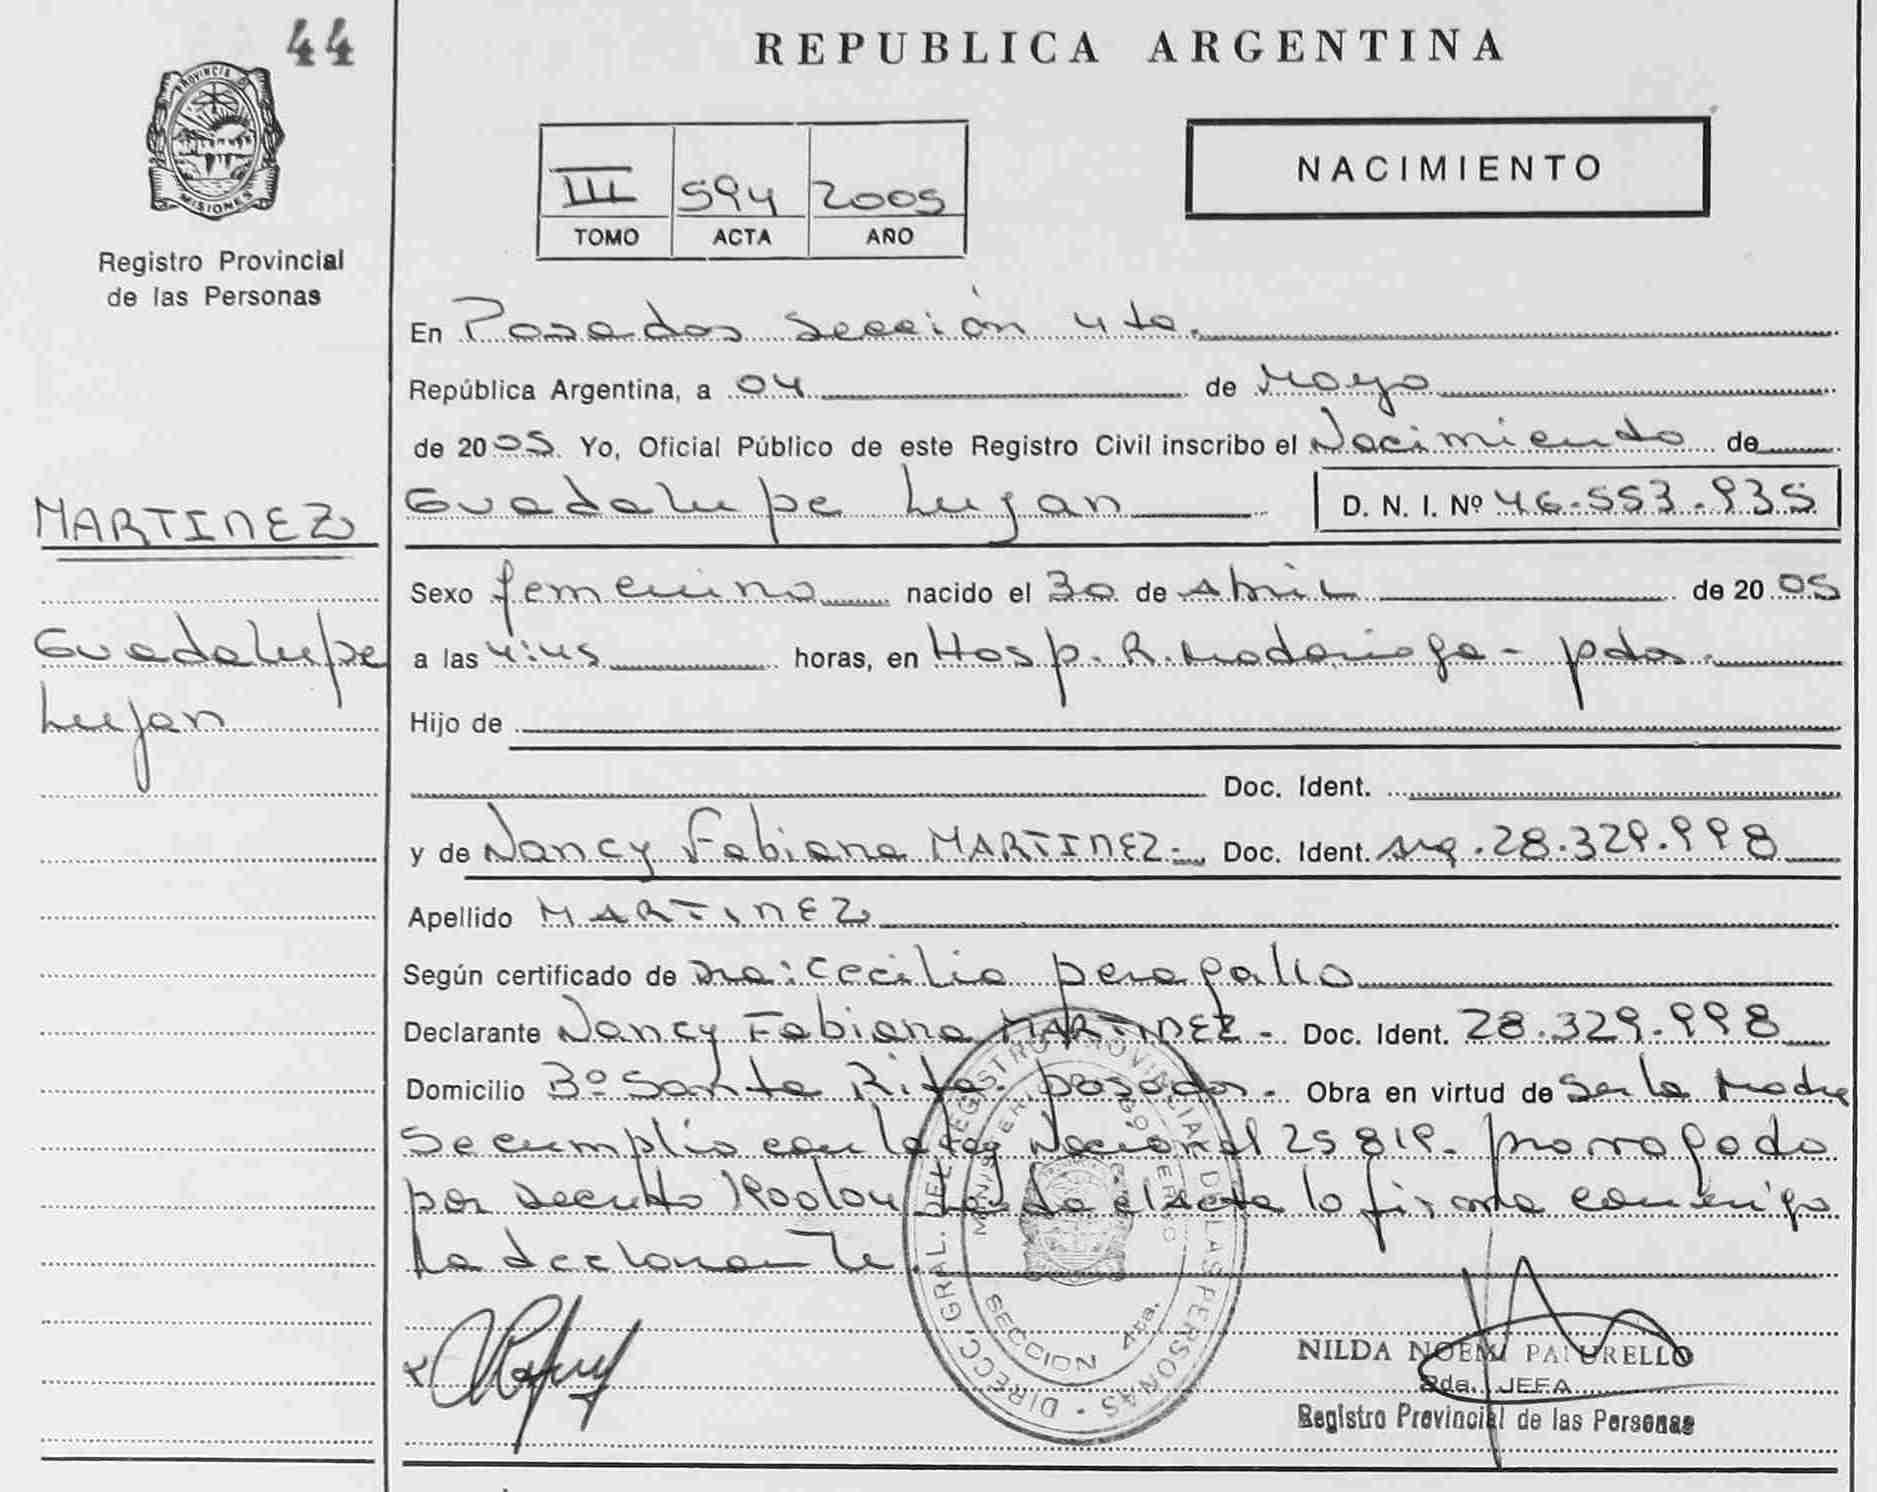 44
REPUBLICA ARGENTINA
PROVINCIA DE
MISIONES
Registro Provincial
de las Personas
III 594 2005
TOMO ACTA AÑO
NACIMIENTO
En Posadas Sección 4ta.
República Argentina, a 04 de Mayo
de 2005 Yo, Oficial Público de este Registro Civil inscribo el Nacimiento de
Guadalupe Lujan D. N. I. Nº 46.553.935
MARTINEZ
Guadalupe
Lujan
Sexo femenino nacido el 30 de Abril de 2005
a las 4:45 horas, en Hosp. R. Madariaga - pdas.
Hijo de
Doc. Ident.
y de Nancy Fabiana MARTINEZ- Doc. Ident. Arg. 28.329.998
Apellido MARTINEZ
Según certificado de Dra: Cecilia peragallo
Declarante Nancy Fabiana MARTINEZ- Doc. Ident. 28.329.998
Domicilio Bº Santa Rita. posadas. Obra en virtud de Ser la Madre
Se cumplio con la ley Nacional 25819. prorrogado
por decreto 1900/04 Leida el Acta lo firma conmigo
la declarante.
DIRECC. GRAL. DEL REGISTRO PROVINCIAL DE LAS PERSONAS
MINISTERIO DE GOBIERNO
SECCION 4ta.
NILDA NOEMI
2da. JEFA
Registro Provincial de las Personas